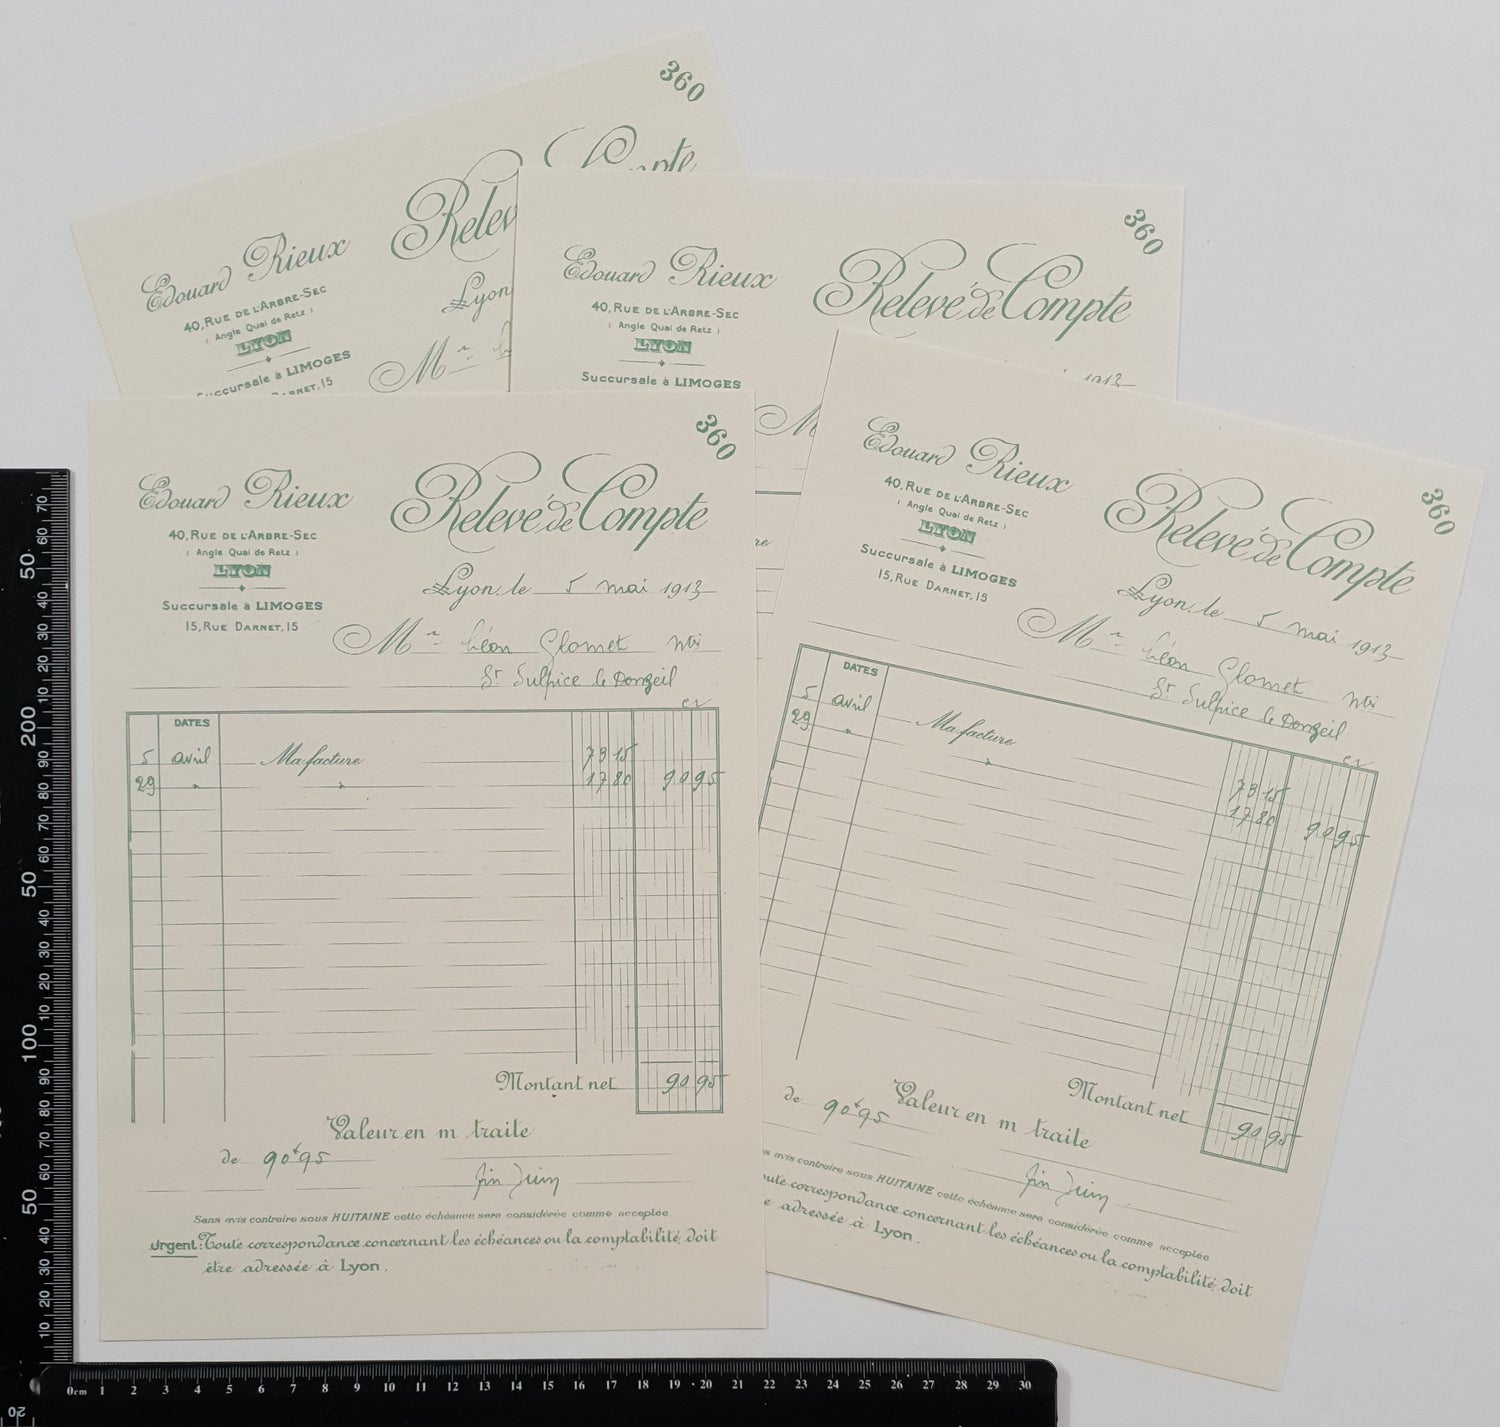 360
Relevé de Compte
Edouard Rieux
40, RUE DE L'ARBRE-SEC
( Angle Quai de Retz )
LYON
Succursale à LIMOGES
DARNET, 15
Relev
Compte
Lyon
Mr
360
Edouard Rieux
Relevé de Compte
40, RUE DE L'ARBRE-SEC
( Angle Quai de Retz )
LYON
Succursale à LIMOGES
1913
M
360
Edouard Rieux
Relevé de Compte
40, RUE DE L'ARBRE-SEC
( Angle Quai de Retz )
LYON
Succursale à LIMOGES
15, RUE DARNET, 15
Lyon, le 5 mai 1913
Mr Léon Glomet
St Sulpice le Donzeil
cr
DATES
5 avril Ma facture 73 15
29 " " 17 80 90 95
Montant net 90 95
Valeur en m traite
de 90f95
fin Juin
Sans avis contraire sous HUITAINE cette échéance sera considérée comme acceptée
Urgent: Toute correspondance concernant les échéances ou la comptabilité, doit
être adressée à Lyon.
360
Edouard Rieux
Relevé de Compte
40, RUE DE L'ARBRE-SEC
( Angle Quai de Retz )
LYON
Succursale à LIMOGES
15, RUE DARNET, 15
Lyon, le 5 mai 1913
Mr Léon Glomet
St Sulpice le Donzeil
cr
DATES
5 avril Ma facture 73 15
29 " " 17 80 90 95
Montant net 90 95
Valeur en m traite
de 90f95
fin Juin
avis contraire sous HUITAINE cette échéance sera considérée comme acceptée
oute correspondance concernant les échéances ou la comptabilité, doit
e adressée à Lyon.
70
60
50
40
30
20
10
200
90
80
70
60
50
40
30
20
10
100
90
80
70
60
50
40
30
20
10
0cm 1 2 3 4 5 6 7 8 9 10 11 12 13 14 15 16 17 18 19 20 21 22 23 24 25 26 27 28 29 30
20